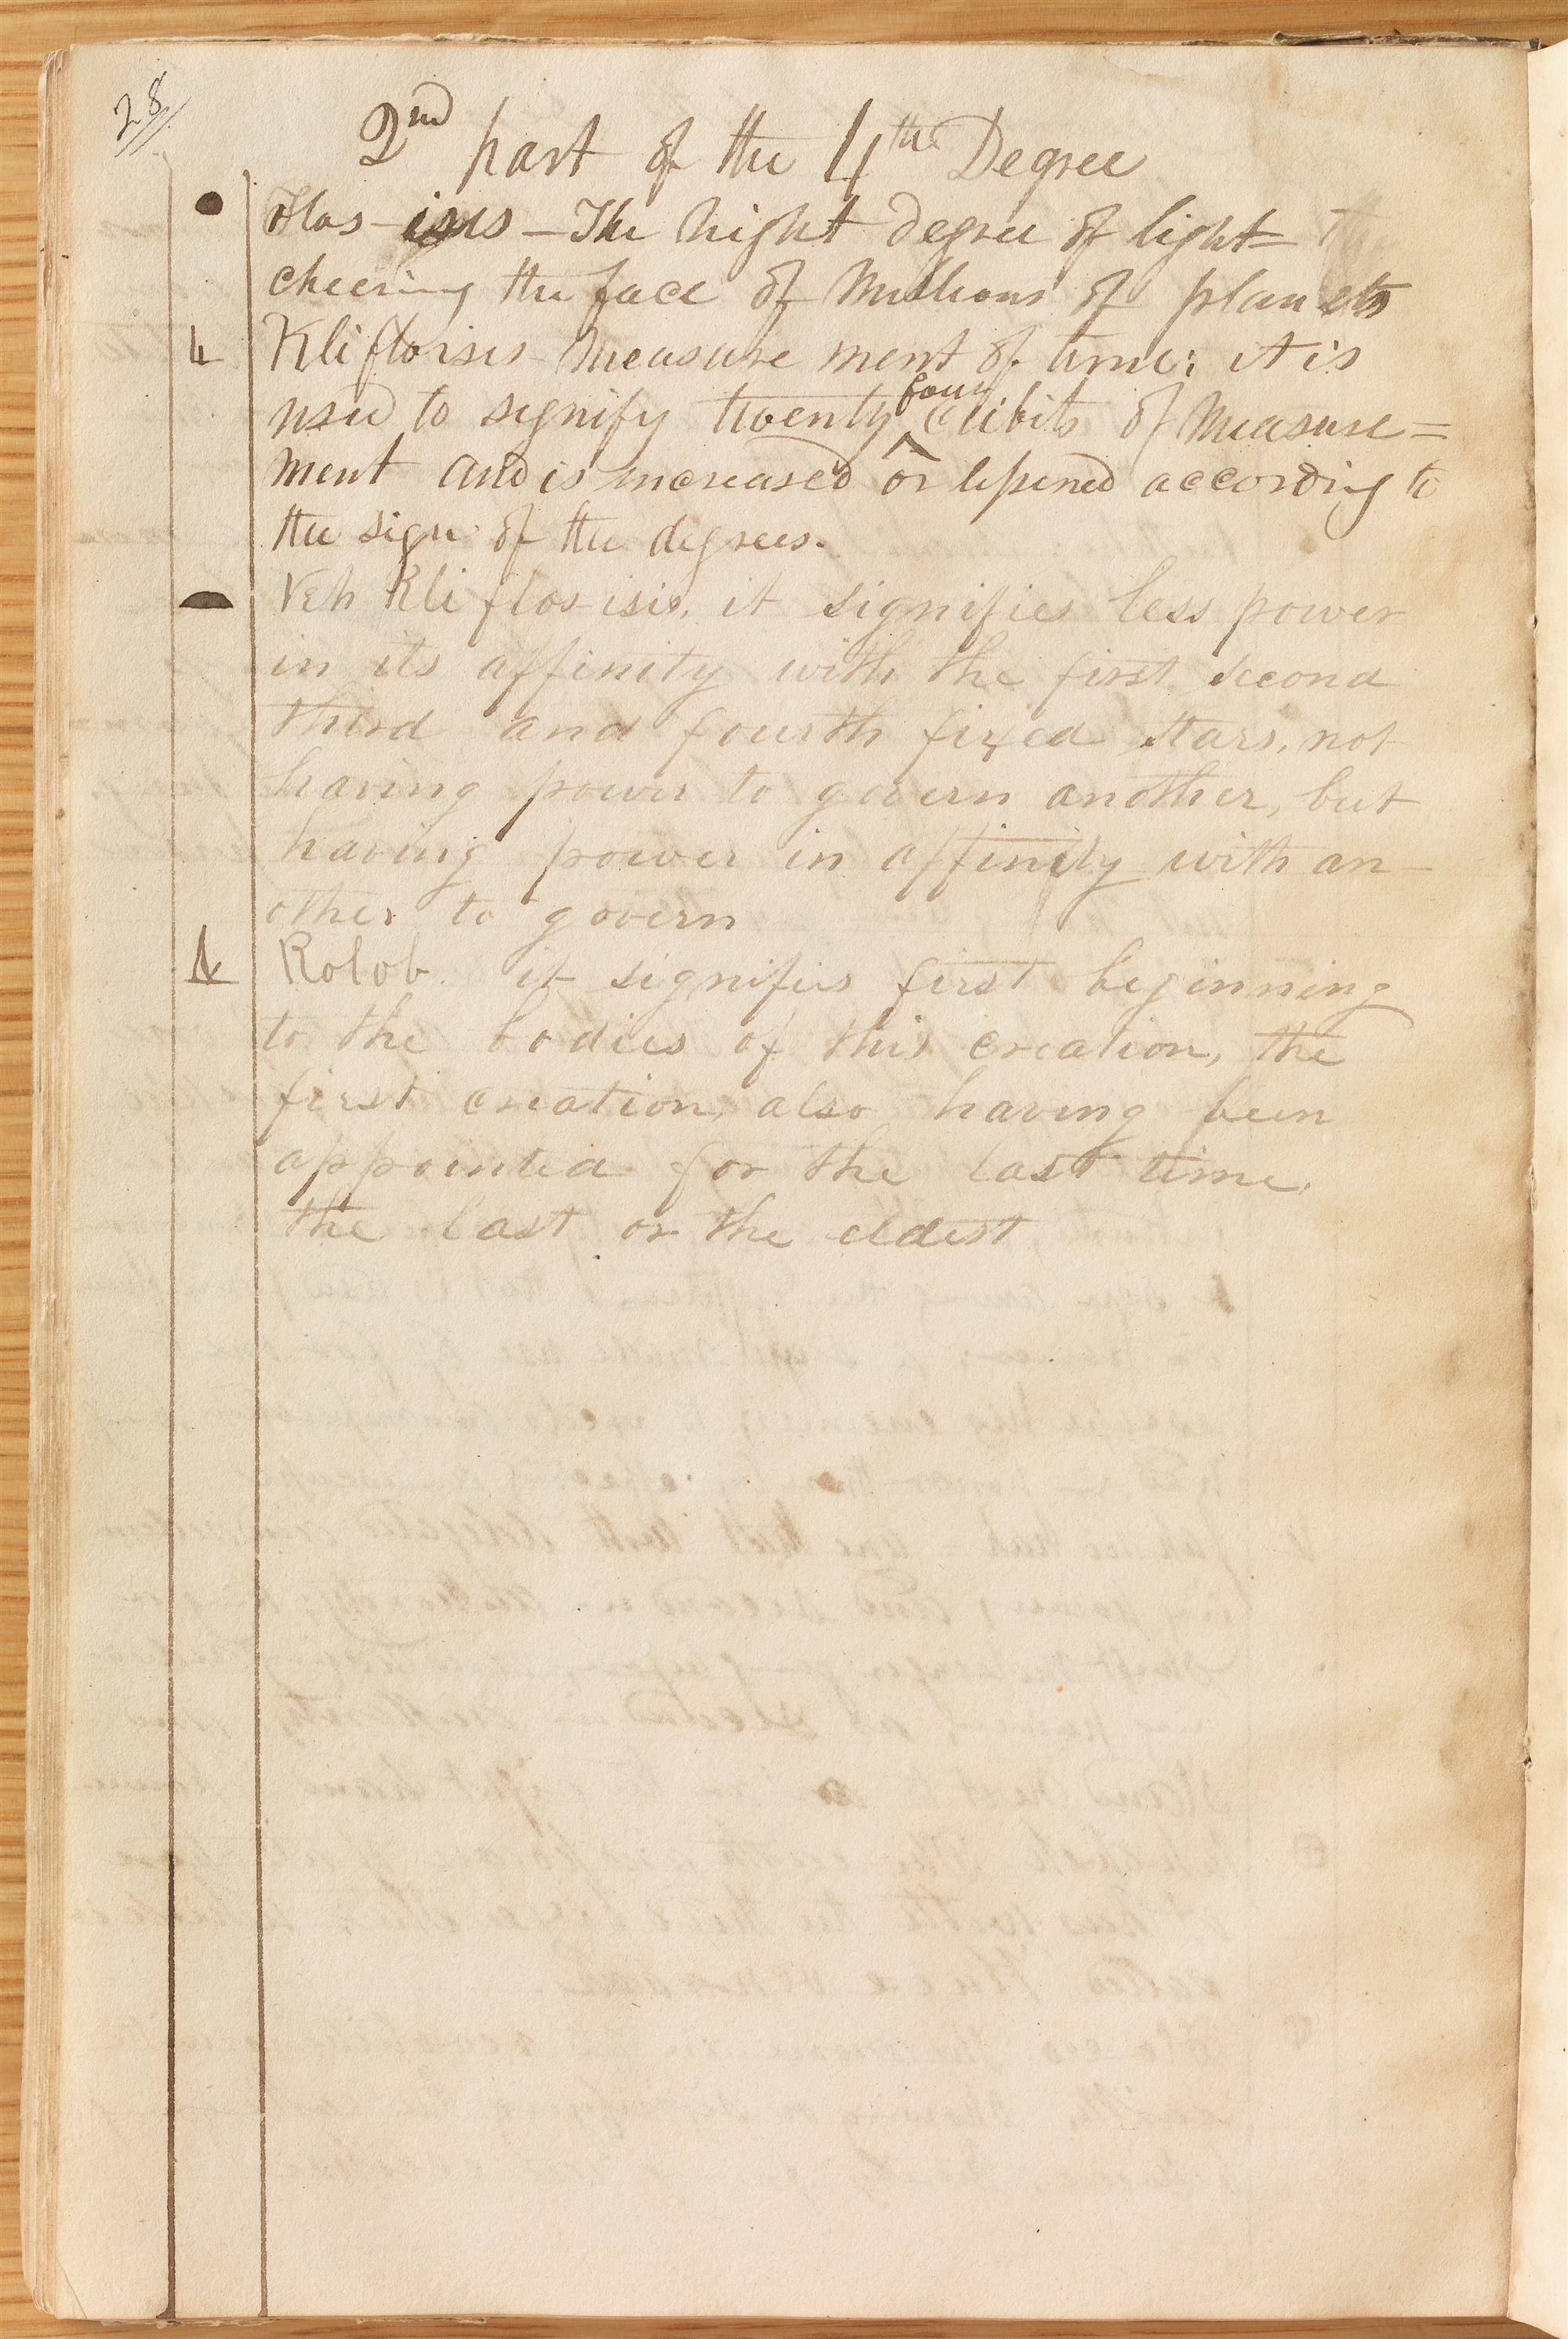 28
2nd part of the 4th Degree
Flos-isis — The hight degree of light =
cheering the face of Millions of planets
Kliflosisis Measure ment of time; it is
used to signify twenty four cubits of Measure=
ment and is increased or lessened according to
the sign of the degrees.
Veh Kli flos-isis, it signifies less power
in its affinity with the first second
third and fourth fixed stars, not
having power to govern another, but
having power in affinity with an-
other to govern
Kolob. it signifies first beginning
to the bodies of this creation, the
first creation, also having been
appointed for the last time,
the last or the eldest